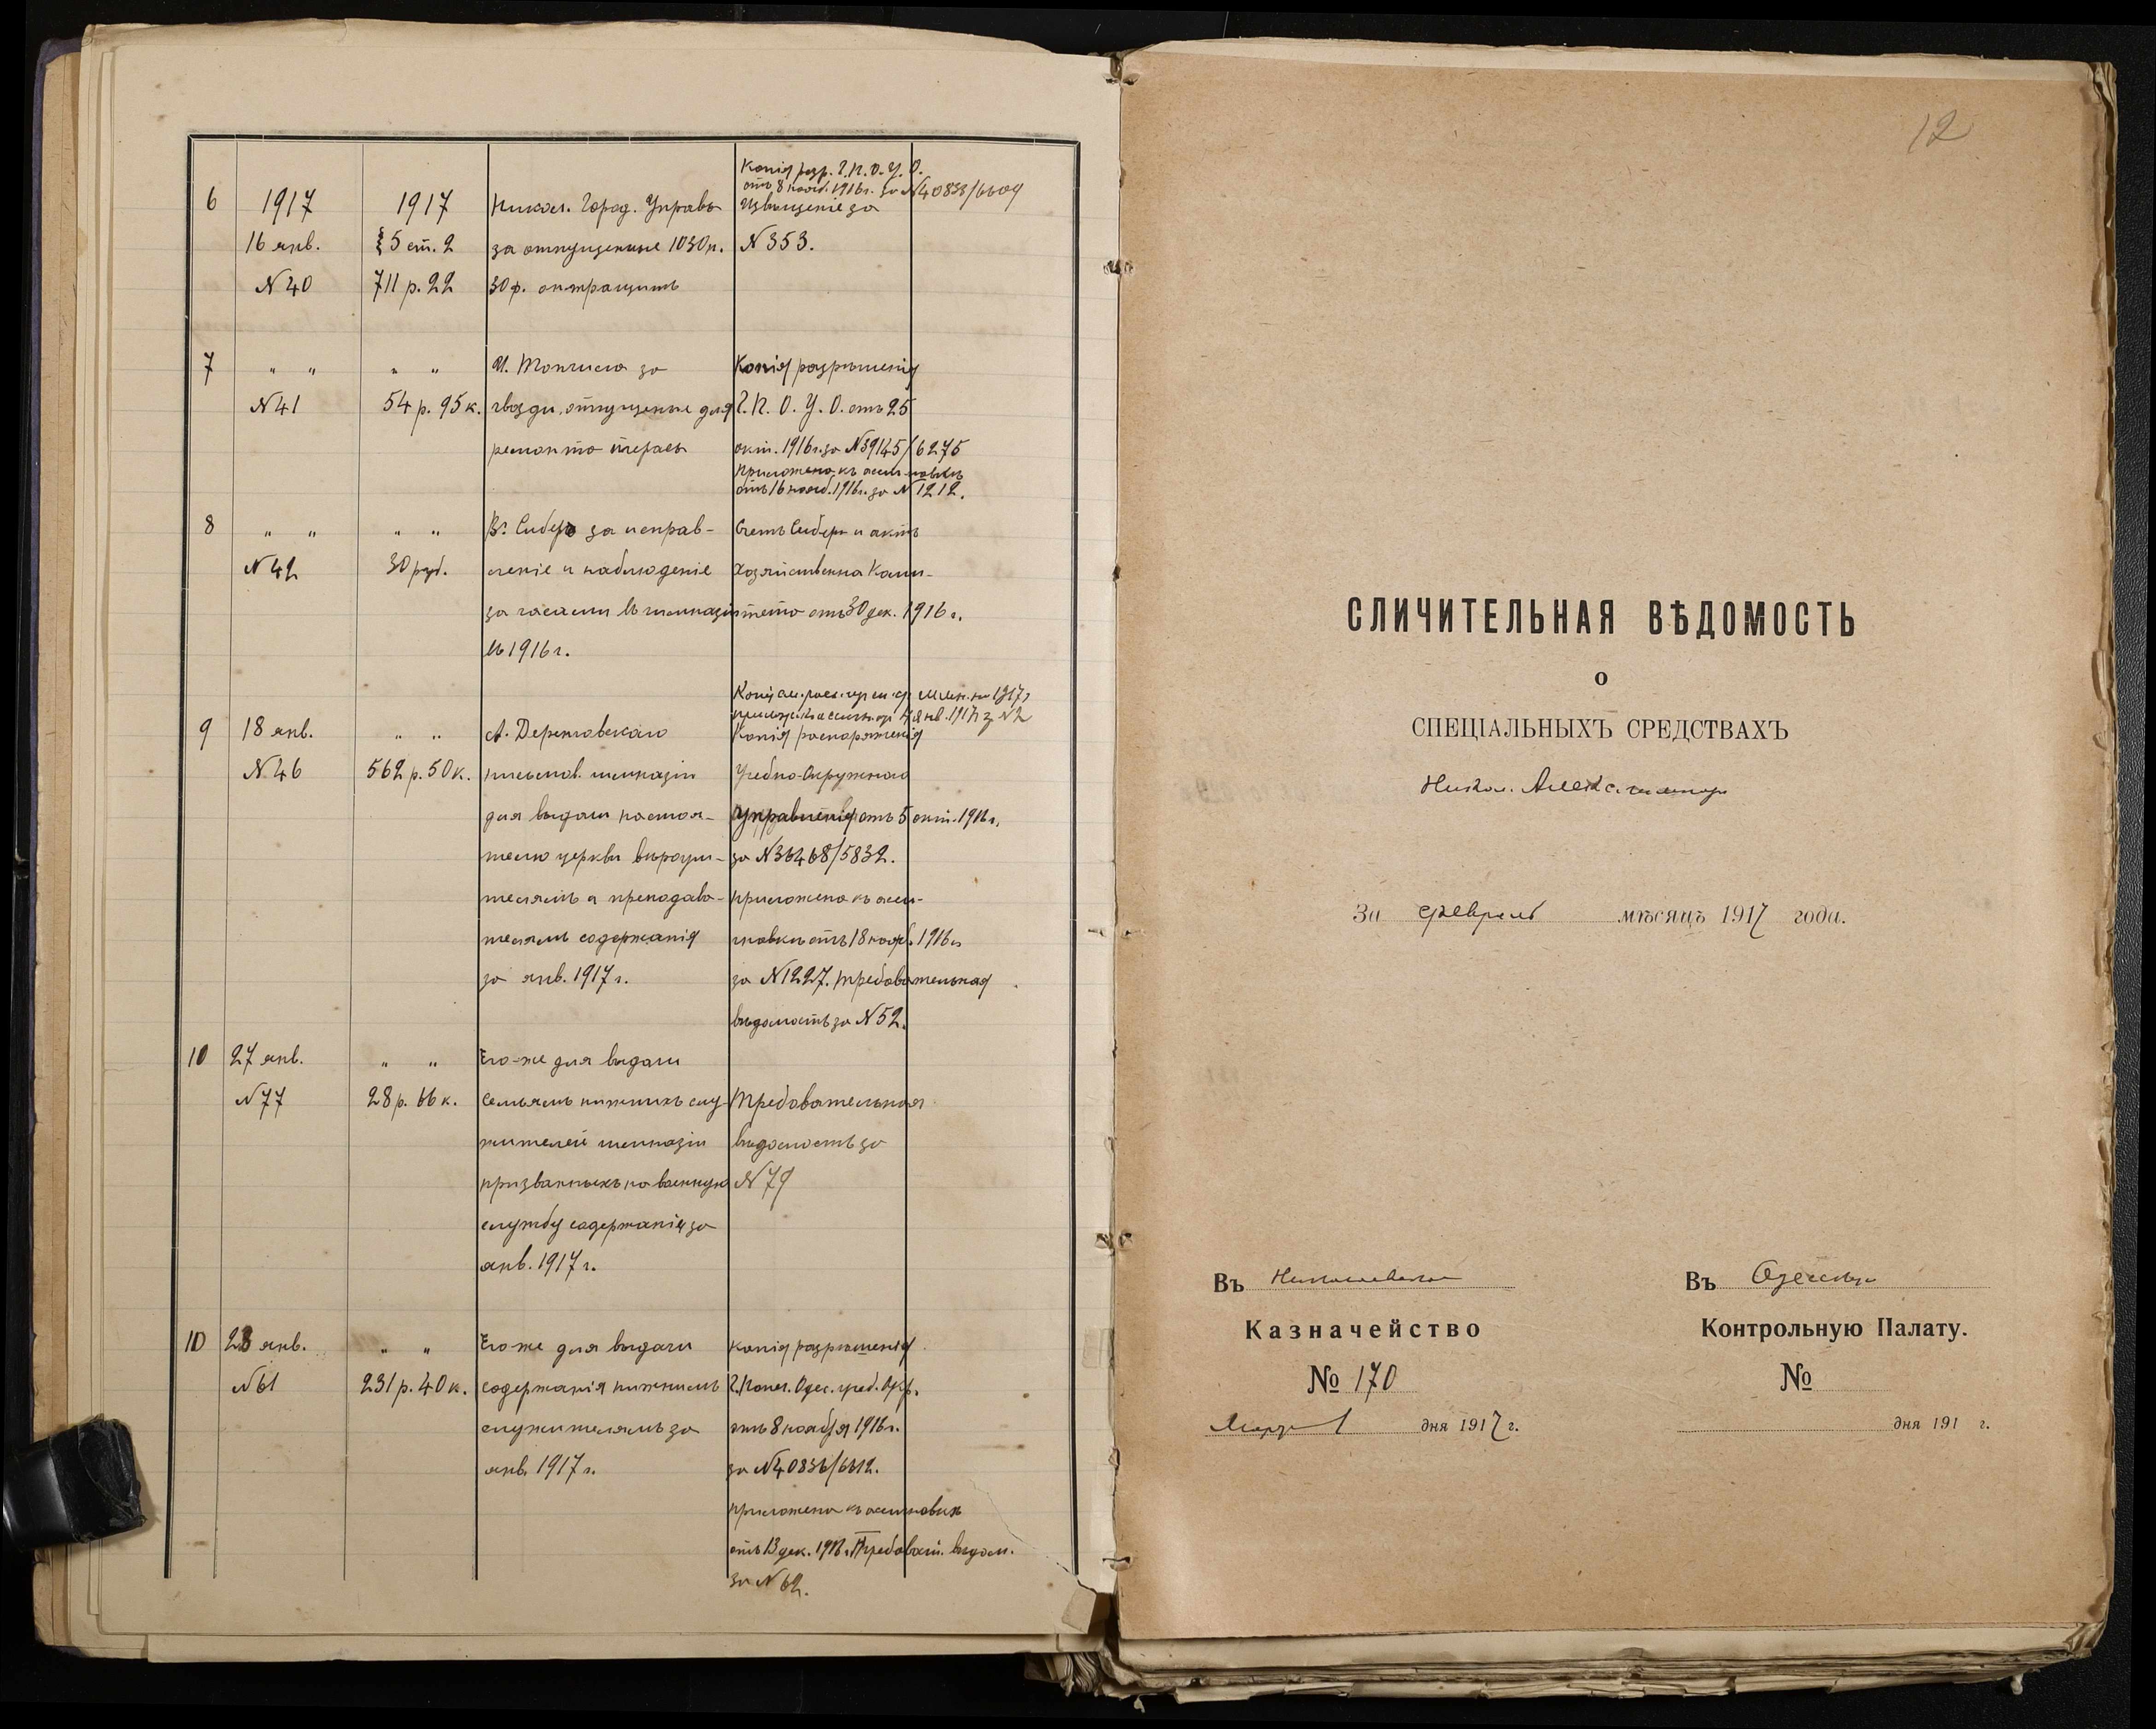 Копія разр. Г.П.О.У.О.
отъ 8 нояб. 1916г. за №40833/6609
6 1917 1917 Никол. Город. Управѣ Извѣщеніе за
16 янв. § 5 ст. 2 за отпущенные 1030п. №353.
№40 711 р. 22 30ф. антрацитъ
7 " " " " Копія разрѣшенія
№41 54 р. 95 к. гвозди, отпущенные для Г.П.О.У.О. отъ 25
ремонта окт. 1916г. за №39145/6275
приложена къ ассигновкѣ
отъ 16 нояб. 1916г. за №1212.
8 " " " " В. Сибер за исправ- Счетъ Сибера и актъ
№42 30 руб. леніе и наблюденіе Хозяйственна Коми-
за часами въ гимназіи тета отъ 30 дек. 1916 г.
въ 1916 г.
9 18 янв. " " А. Копія распоряженія
№46 562 р. 50 к. письмов. гимназіи Учебно-Окружнаго
для выдачи настоя- Управленія отъ 5 окт. 1916 г.
телю церкви вѣроучи- за №36468/5832.
телямъ и преподава- приложена къ асси-
телямъ содержанія гновкѣ отъ 18 нояб. 1916 г.
за янв. 1917 г. за №1227. Требовательная
вѣдомость за №52.
10 27 янв. " " Его-же для выдачи
№77 28 р. 66 к. семьямъ нижнихъ слу- Требовательная
жителей гимназіи вѣдомость за
призванныхъ на военную №79
службу содержанія за
янв. 1917 г.
10 28 янв. " " Его же для выдачи копія разрѣшенія
№61 231 р. 40 к. содержанія нижнимъ Г. Попеч. Одес. учеб. Окр.
служителямъ за отъ 8 ноября 1916 г.
янв. 1917 г. за №40836/6612.
приложена къ ассигновкѣ
отъ 13 дек. 1916 г. Требоват. вѣдом.
за №62.
12
СЛИЧИТЕЛЬНАЯ ВѢДОМОСТЬ
о
СПЕЦІАЛЬНЫХЪ СРЕДСТВАХЪ
Никол. Алекс. гимназіи
За февраль мѣсяцъ 1917 года.
Въ Николаевское
Казначейство
№ 170
Марта 1 дня 1917 г.
Въ Одесскую
Контрольную Палату.
№
дня 191 г.